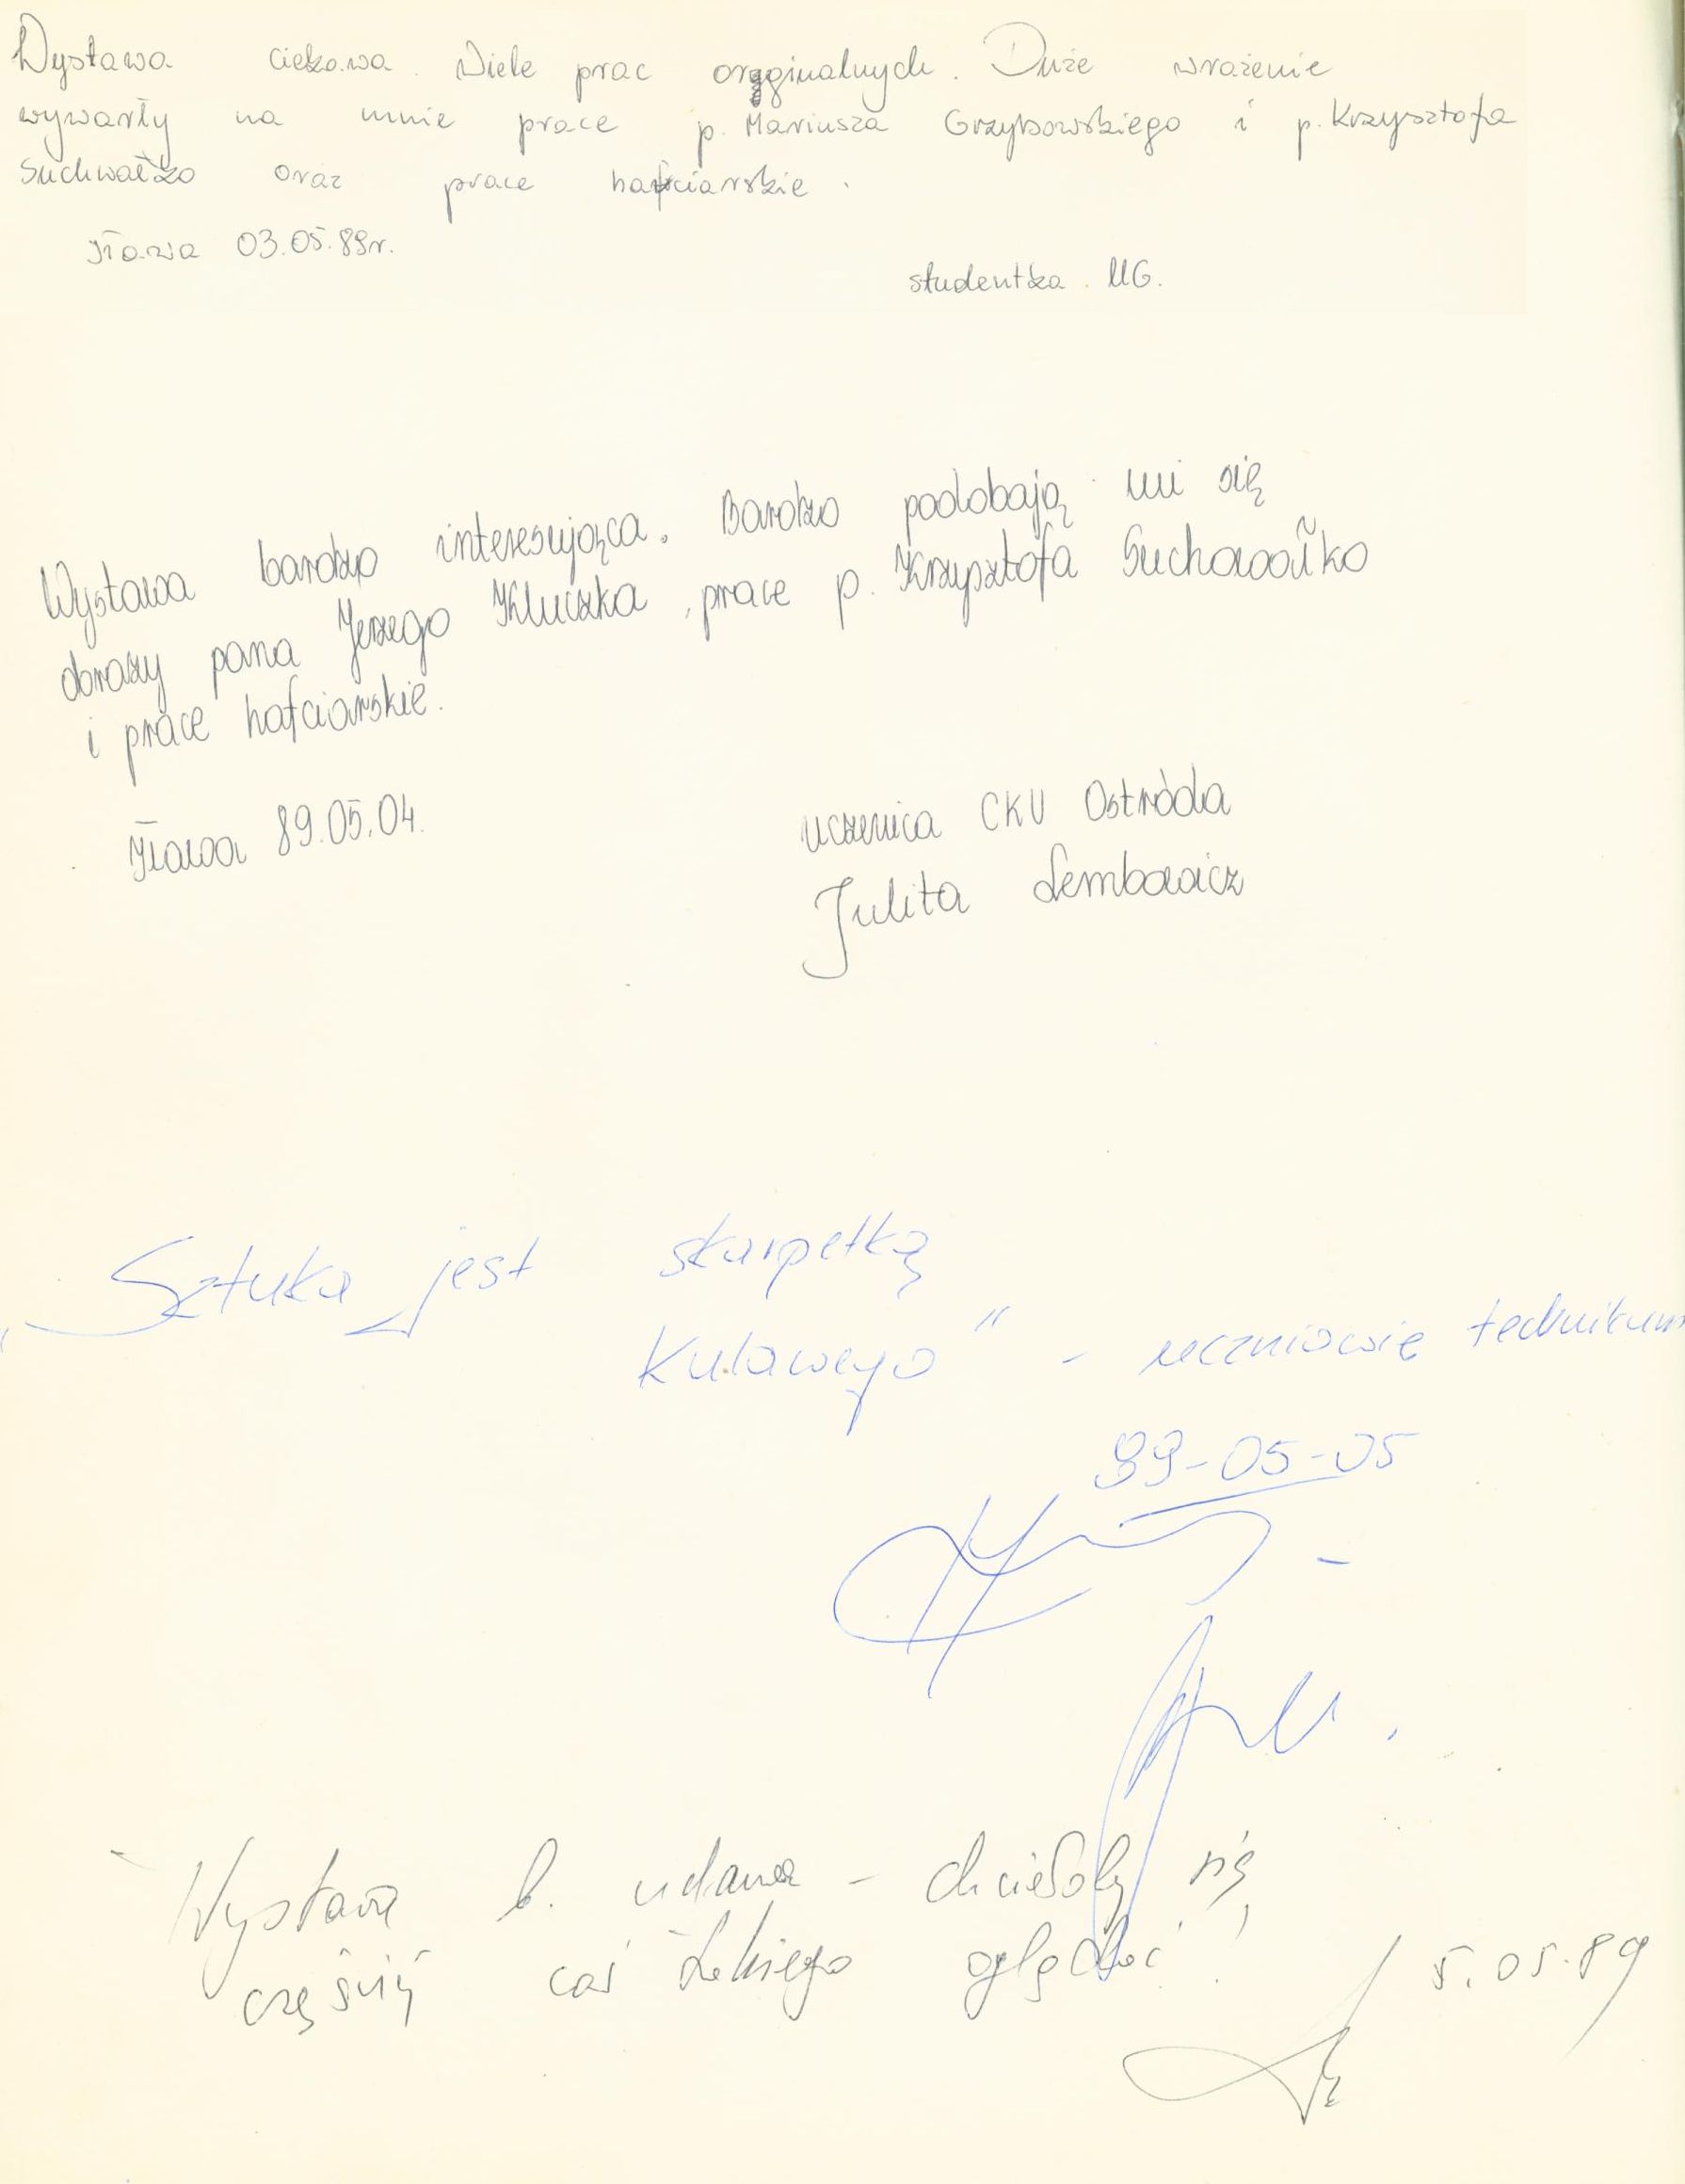 Wystawa ciekawa. Wiele prac oryginalnych. Duże wrażenie
wywarły na mnie prace p. Mariusza Grzybowskiego i p. Krzysztofa
Suchwałko oraz prace hafciarskie.
Iława 03.05.89r.
studentka. UG.
Wystawa bardzo interesująca. Bardzo podobają mi się
obrazy pana Jerzego Kluczka, prace p. Krzysztofa Suchowałko
i prace hafciarskie.
Iława 89.05.04.
uczenica CKU Ostróda
Julita Lembowicz
„Sztuka jest skarpetką
Kulawego” - uczniowie technikum
89-05-05
Wystawa b. udana - chciałoby się
częściej coś takiego oglądać!
5.05.89